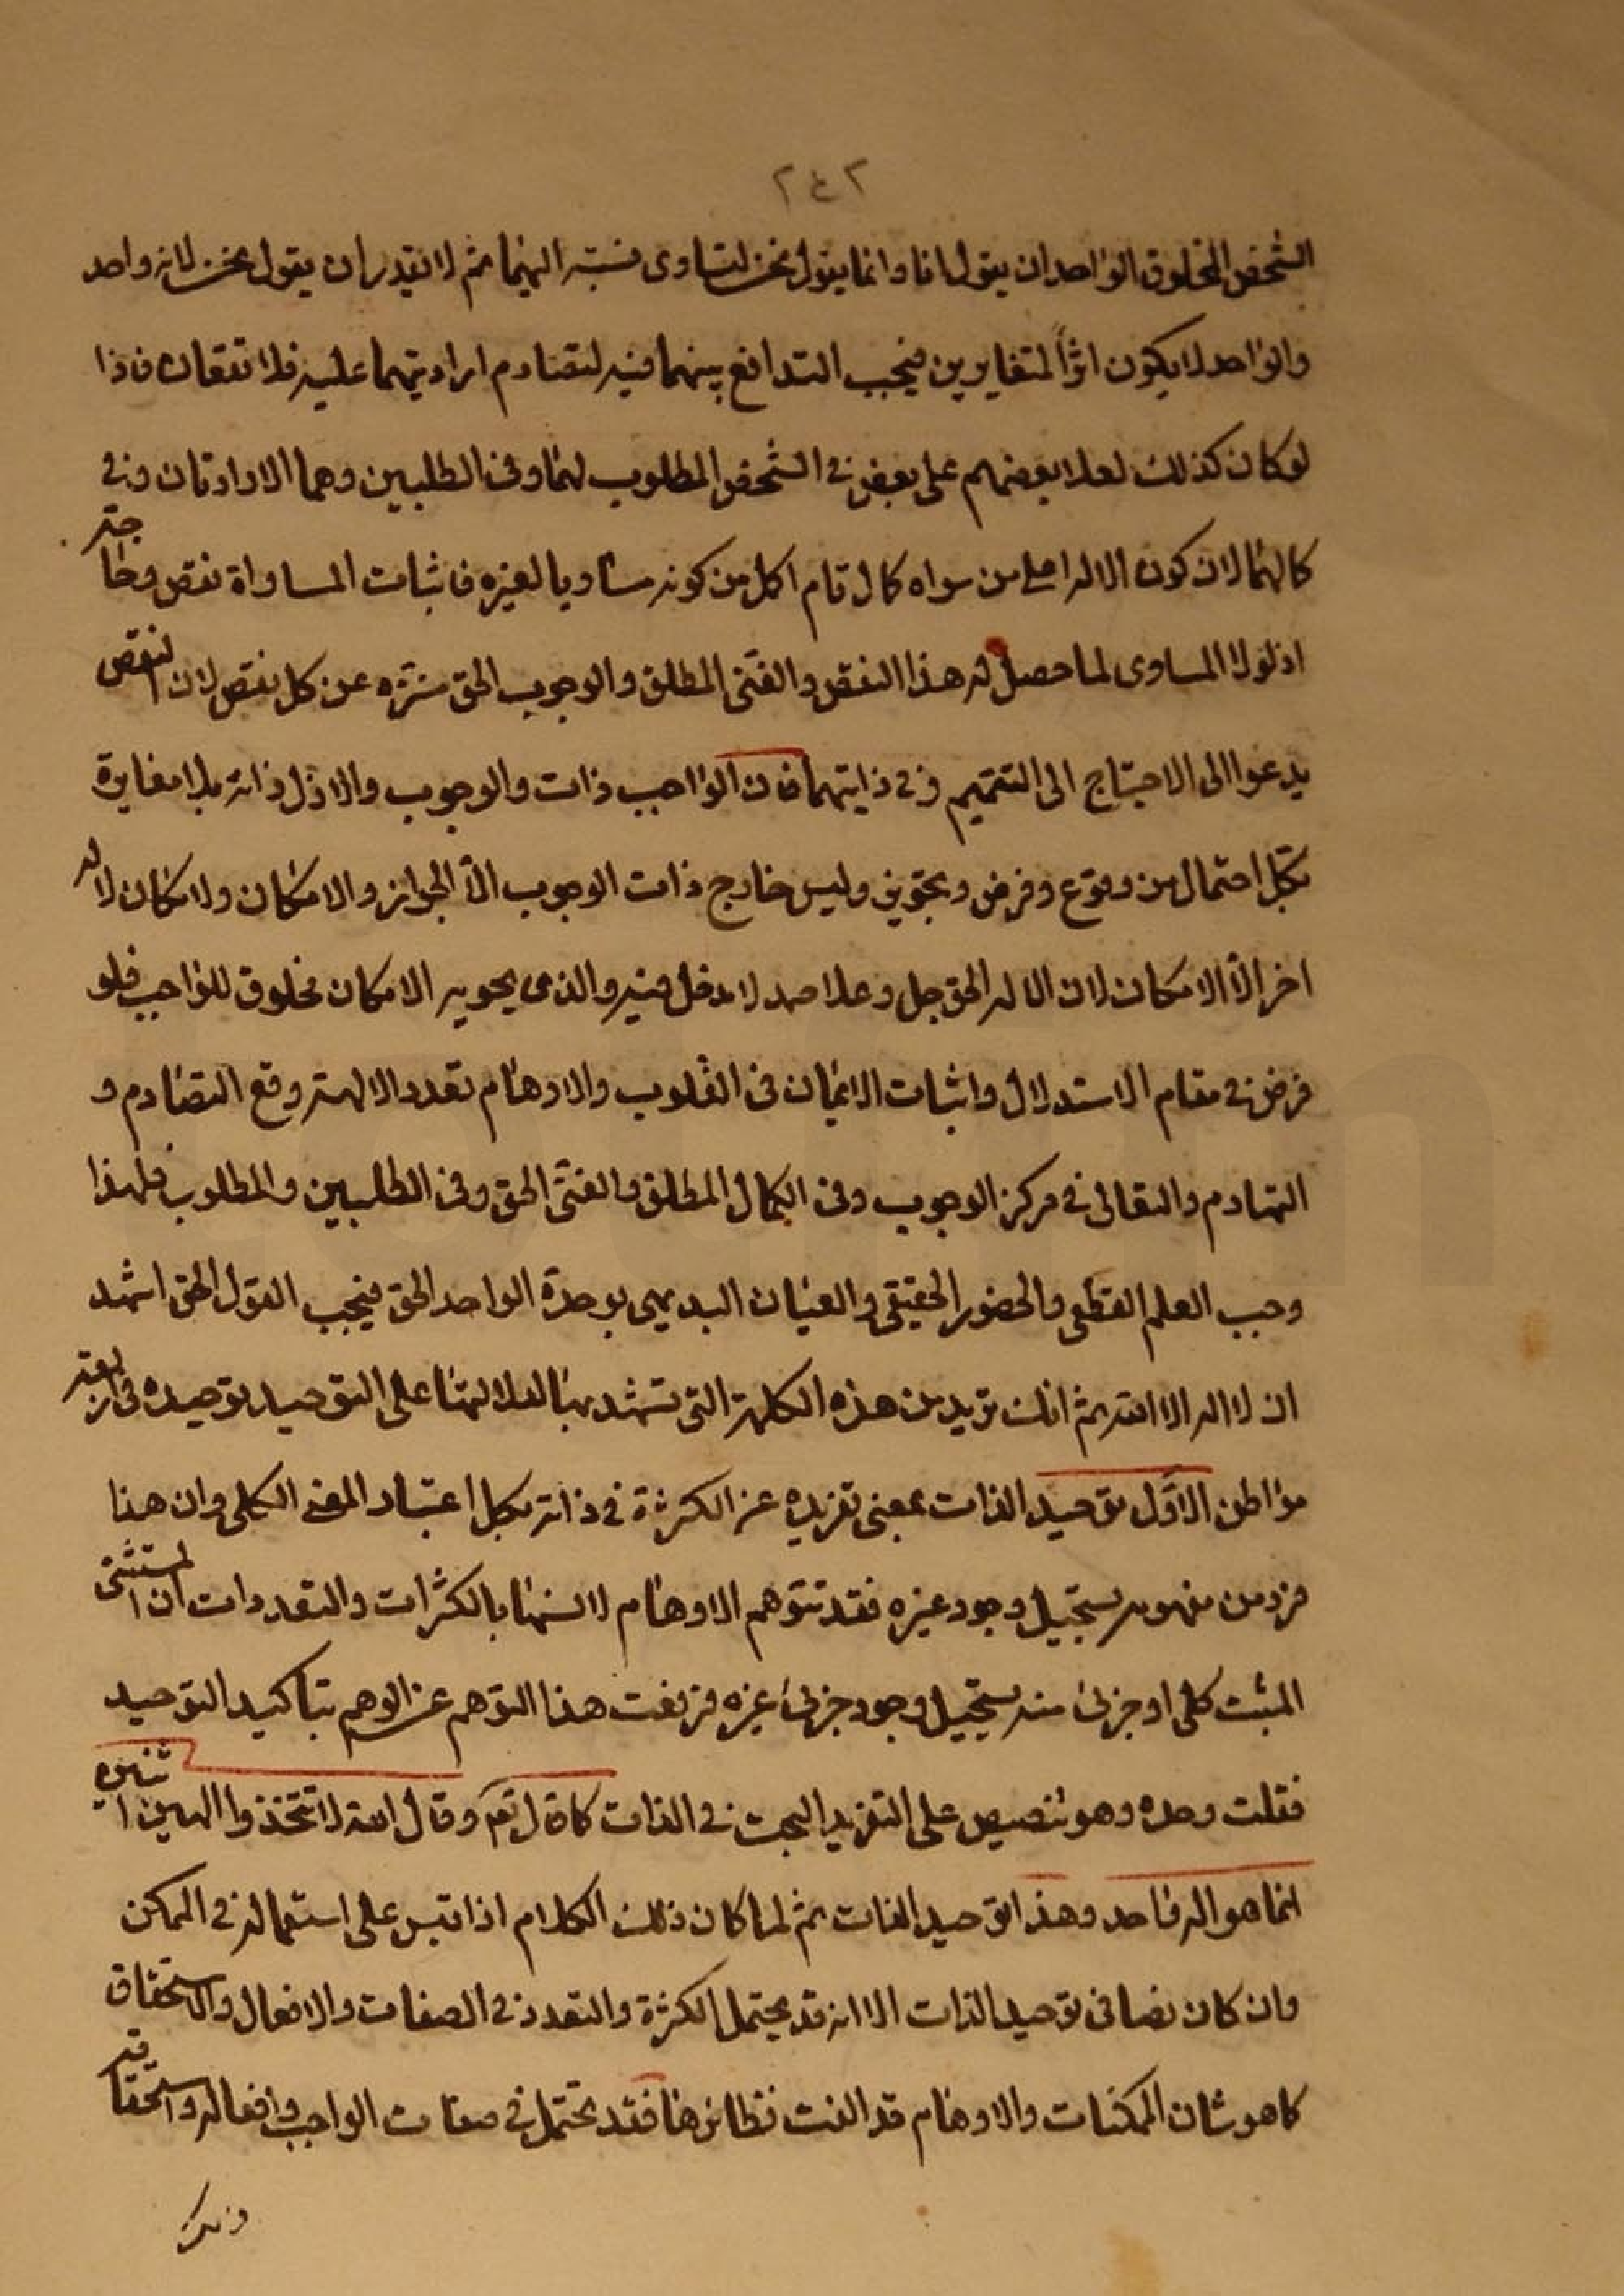 ٢٤٢
الشخص المخلوق الواحد ان يقول انا وانما يقول نحن لتساوى نسبته اليهما ثم لا يقدر ان يقول نحن لانه واحد
والواحد لا يكون اثراً لمتغايرين فيجب التدافع بينهما فيه لتصادم ارادتيهما عليه فلا تتفقان فاذا
لو كان كذلك لعلا بعضهم على بعض فى الشخص المطلوب لهما وفى الطلبين وهما الارادتان وفى
كمالهما لان كون الاله اعلى من سواه كمال تام اكمل من كونه مساويا لغيره فاثبات المساواة نقص وحاجة
اذ لولا المساوى لما حصل له هذا النقص والغنى المطلق والوجوب الحق منزه عن كل نقص لان النقص
يدعوا الى الاحتياج الى التتميم وفى ذاتيهما فان الواجب ذات والوجوب والازل ذاته بلا مغايرة
بكل احتمال من وقوع وفرض وتجويز وليس خارج ذات الوجوب الّا الجواز والامكان ولا مكان لاله
اخر الّا الامكان لان الاله الحق جل وعلا صمد لا مدخل فيه والذى يحويه الامكان مخلوق للواجب فلو
فرض فى مقام الاستدلال واثبات الايمان فى القلوب والاوهام تعدد الالهة وقع التصادم و
التهادم والتعالى فى مركز الوجوب وفى الكمال المطلق والغنى الحق وفى الطلبين والمطلوب فلهذا
وجب العلم القطعى والحضور الحقيقى والعيان البديهى بوحدة الواحد الحق فيجب القول الحق اشهد
ان لا اله الا الله ثم انك تريد من هذه الكلمة التى تشهد بها لدلالتها على التوحيد توحيده فى اربعة
مواطن الاوّل توحيد الذات بمعنى تفريده عن الكثرة فى ذاته بكل اعتبار المعنى الكلى وان هذا
فرد من مفهومه يستحيل وجود غيره فقد تتوهم الاوهام لانسها بالكثرات والتعددات ان المستثنى
المثبت كلى او جزئى منه يستحيل وجود جزئى غيره فرفعت هذا التوهم عن الوهم بتاكيد التوحيد
فقلت وحده وهو تنصيص على التفريد البحت فى الذات كما قال تع وقال الله لا تتخذوا الهين اثنين
انما هو اله واحد وهذا توحيد الذات ثم لما كان ذلك الكلام اذا قيس على استعماله فى الممكن
وان كان نصا فى توحيد الذات الا انه قد يحتمل الكثرة والتعدد فى الصفات والافعال والاستحقاق
كما هو شان الممكنات والاوهام قد الفت نظائرها فقد تحتمل فى صفات الواجب وافعاله واستحقاقه